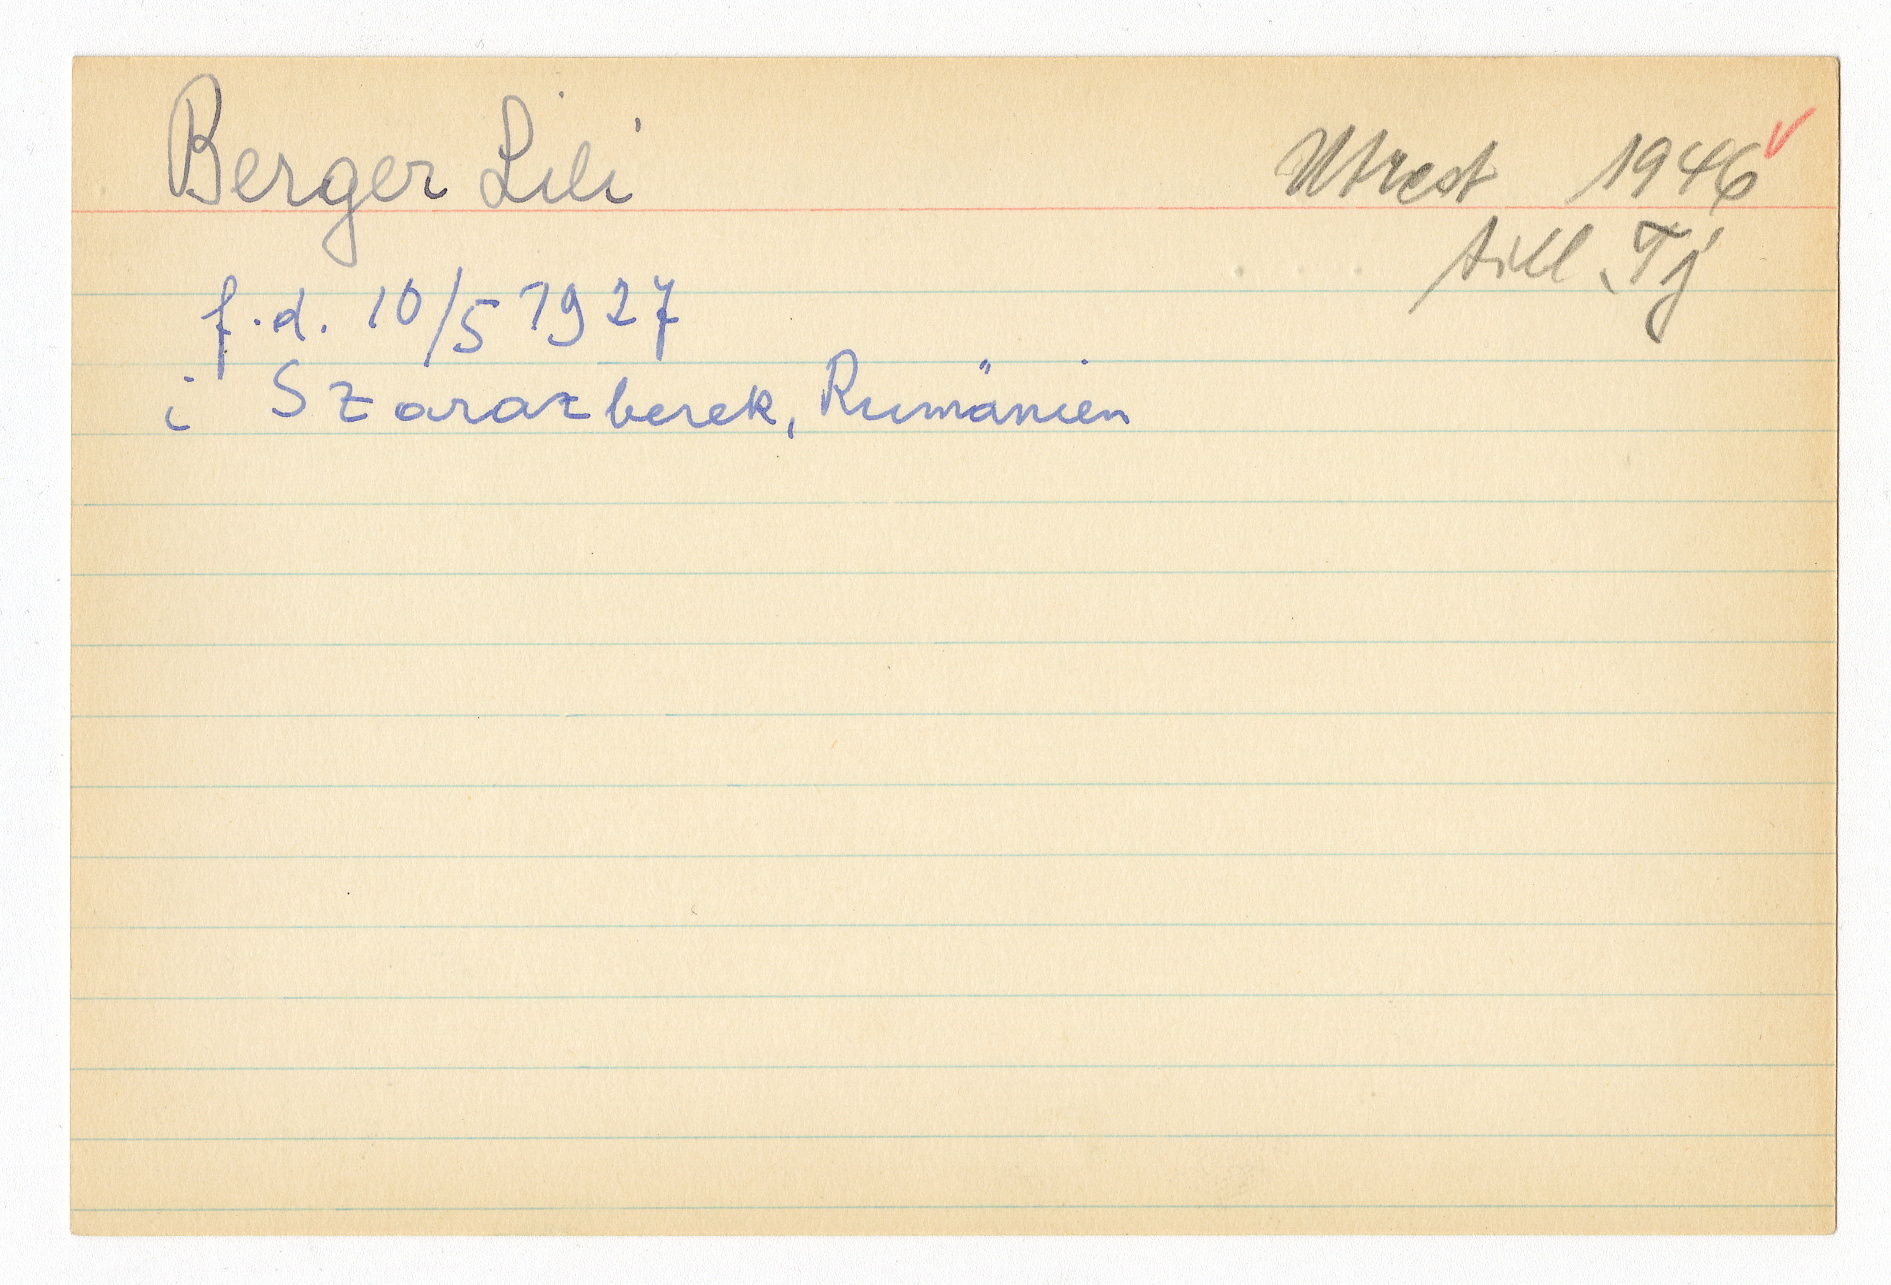 Berger Lili
Utrest 1946
till Tj
f.d. 10/5 1927
i Szarazberek, Rumänien